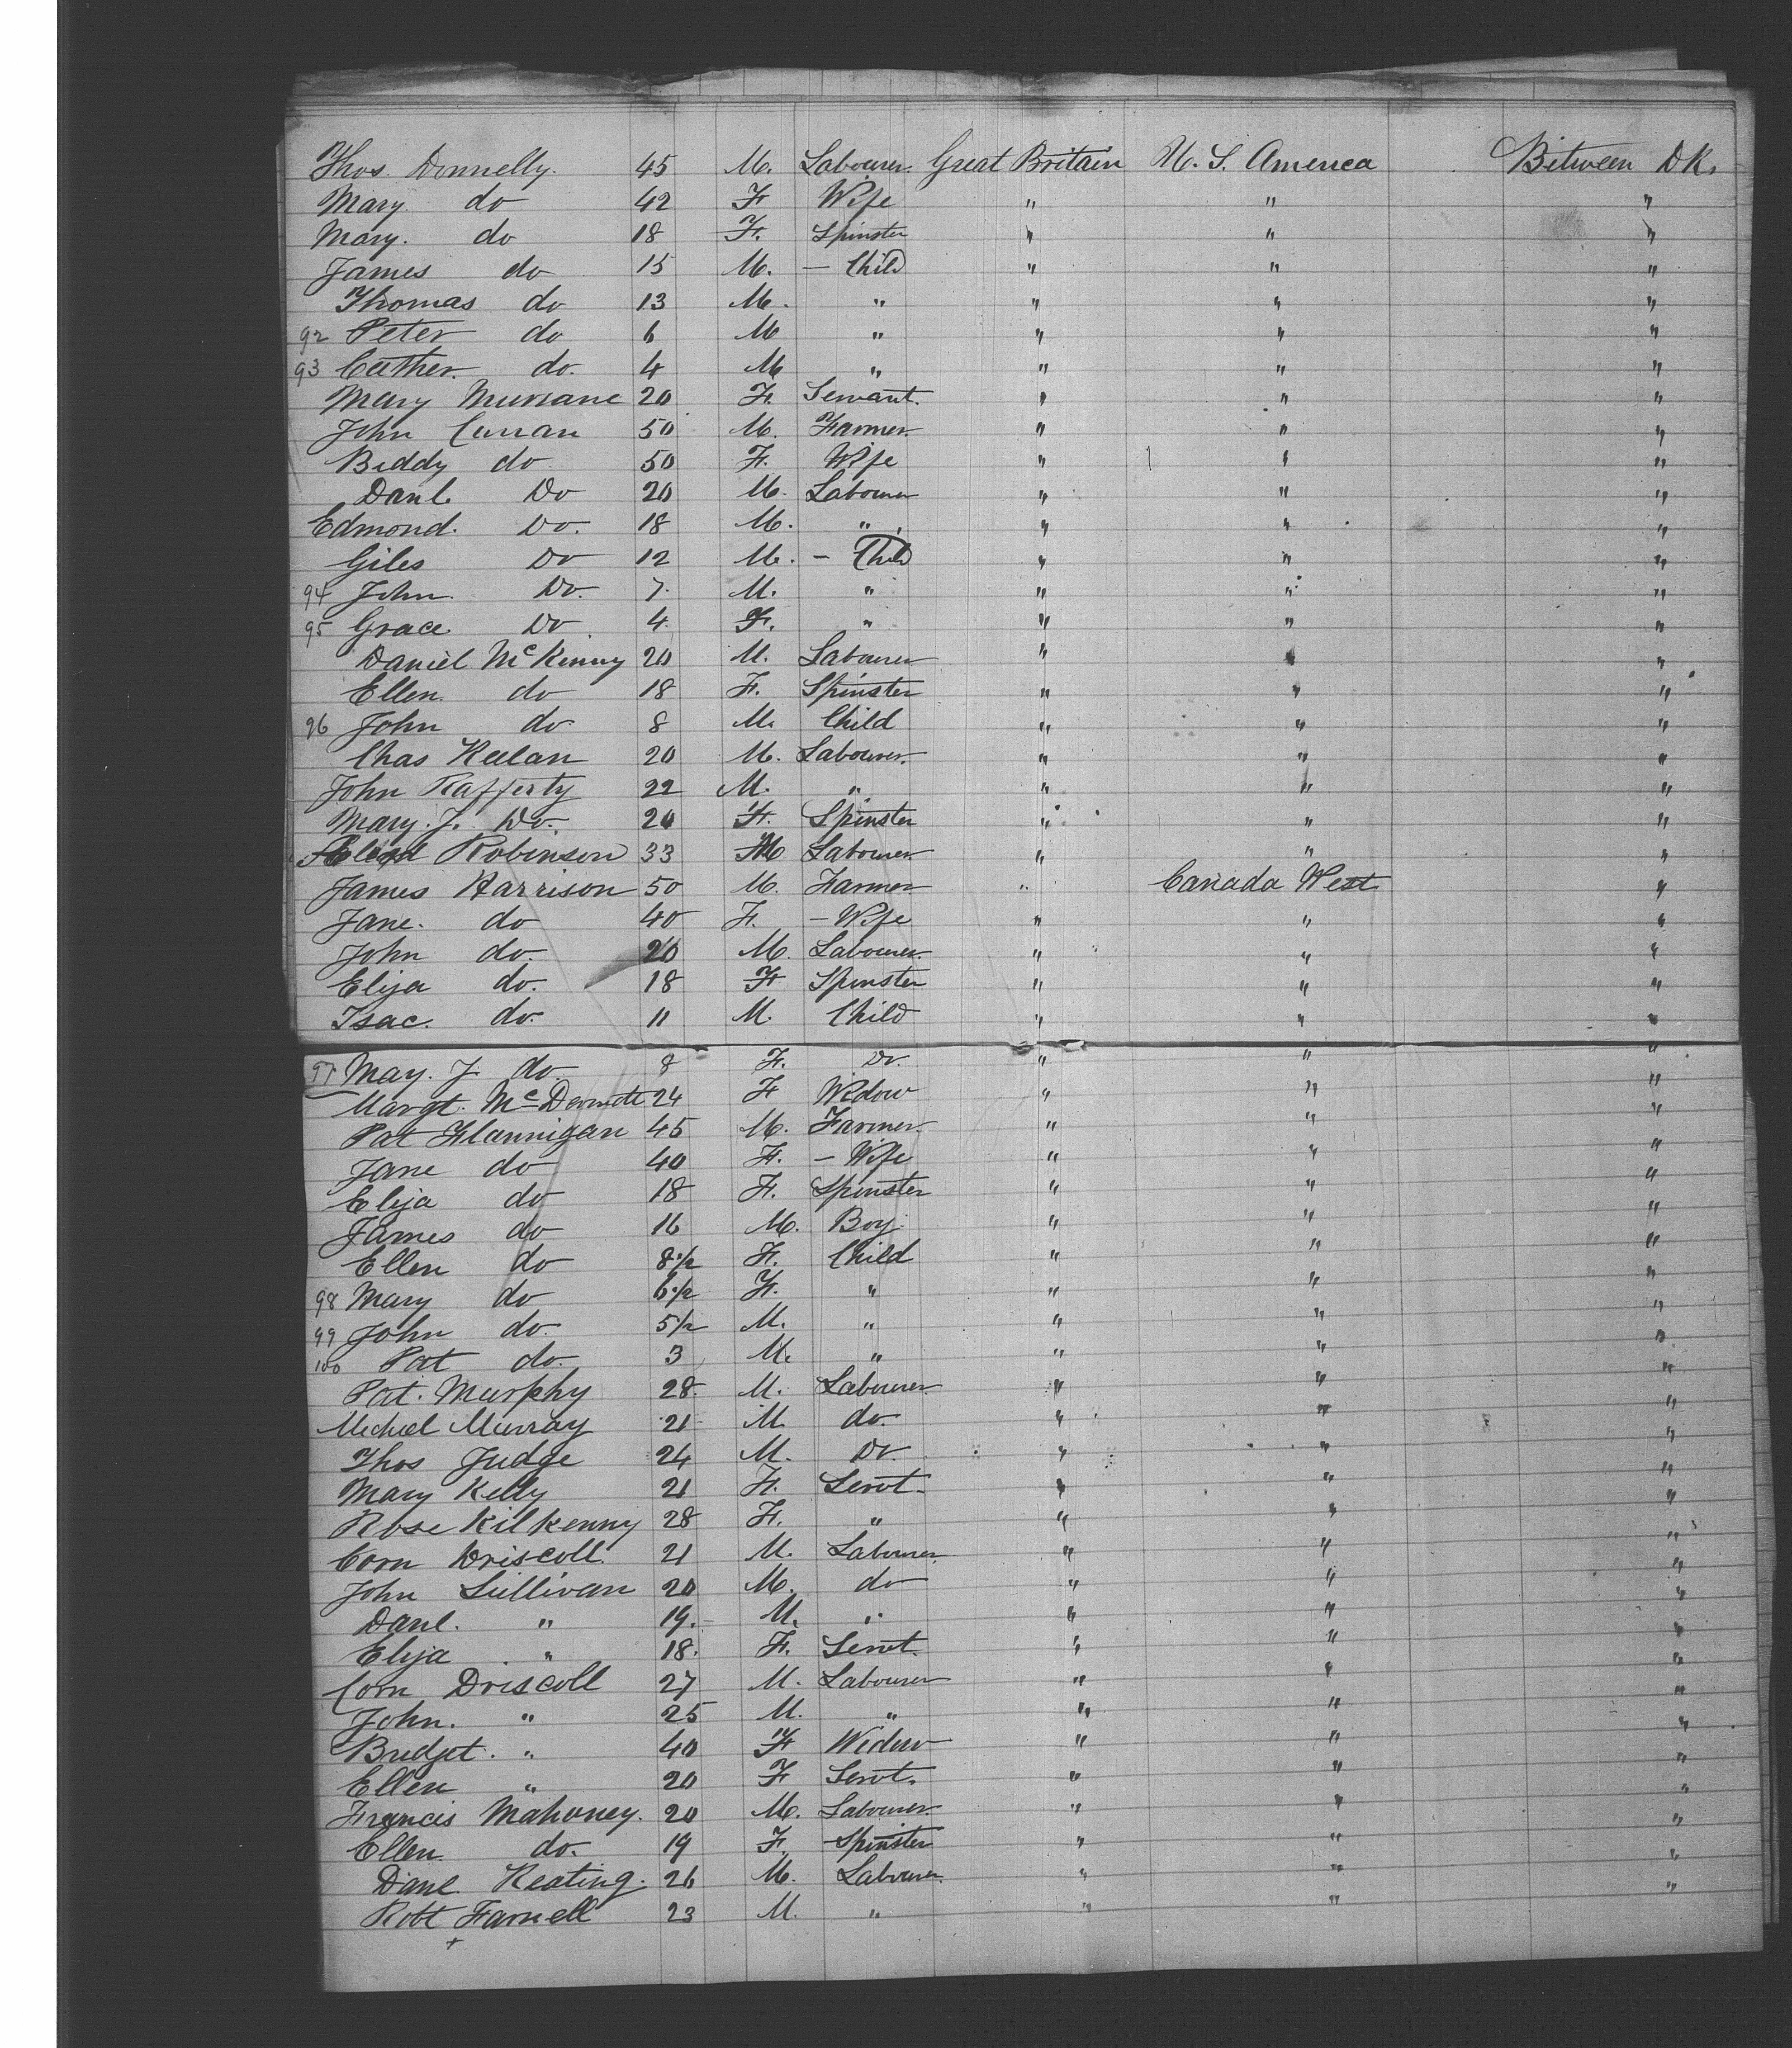 Thos. Donnelly. 45 M. Labourer. Great Britain U. S. America Between DK.
Mary do 42 F Wife " " "
Mary. do 18 F. Spinster " " "
James do 15 M. - Child " " "
Thomas do 13 M. " " " "
92 Peter do 6 M " " " "
93 Cather. do. 4 M " " " "
Mary 20 F. Servant. " " "
John Curran 50 M. Farmer. " " "
Biddy do 50 F. Wife " " "
Danl. Do 20 M. Labourer " " "
Edmond. Do. 18 M. " " " "
Giles Do 12 M. - Child " " "
94 John Do. 7. M. " " " "
95 Grace. Do 4 F. " " " "
Daniel McKenny 20 M. Labourer " " "
Ellen. do 18 F. Spinster " " "
96 John do 8 M. Child " " "
Chas Keelan 20 M. Labourer. " " "
John Rafferty 22 M. " " " "
Mary. J. Do. 20 F. Spinster " " "
Robinson 33 M Labourer. " " "
James Harrison 50 M. Farmer " Canada West "
Jane. do 40 F. - Wife " " "
John do. 20 M. Labourer. " " "
Eliza do. 18 F Spinster " " "
Isac. do. 11 M. Child " " "
97 May. J. do. 8 F. Do. " " "
Margt. McDermott 24 F Widow " " "
Pat Flannigan 45 M. Farmer. " " "
Jane do 40 F. - Wife " " "
Eliza do 18 F. Spinster " " "
James do 16 M. Boy. " " "
Ellen do 8 1/2 F. Child " " "
98 Mary do 6 1/2 F. " " " "
99 John do. 5 1/2 M. " " " "
100 Pat do. 3 M. " " " "
Pat. Murphy 28. M. Labourer " " "
Micheal Murray 21 M do. " " "
Thos Judge 24 M. Do. " " "
Mary Kelly 21 F. Servt. " " "
Rose Kilkenny 28 F. " " " "
Corn Driscoll. 21 M. Labourer. " " "
John Sullivan 20 M. do " " "
Danl. " 19. M. " " " "
Eliza " 18. F. Servt. " " "
Corn Driscoll 27 M. Labourer " " "
John. " 25 M. " " " "
Bridget. " 40 F Widow " " "
Ellen " 20 F Servt. " " "
Francis Mahoney. 20 M. Labourer. " " "
Ellen do. 19 F. Spinster " " "
Danl. Keating. 26 M. Labourer. " " "
Robt Farnell 23 M. " " "
+